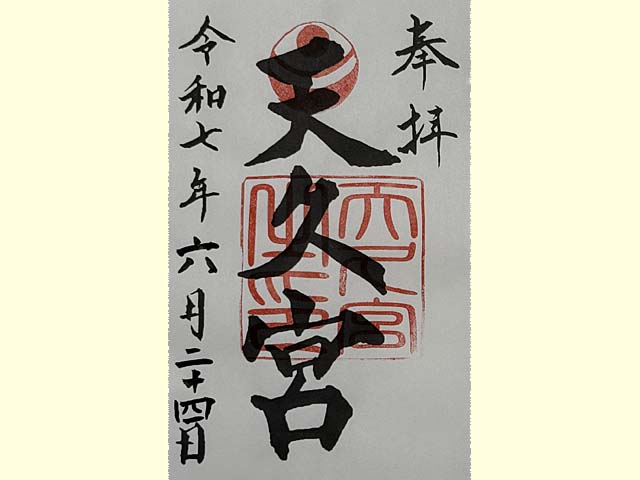 奉拝
天久宮
令和七年六月二十四日